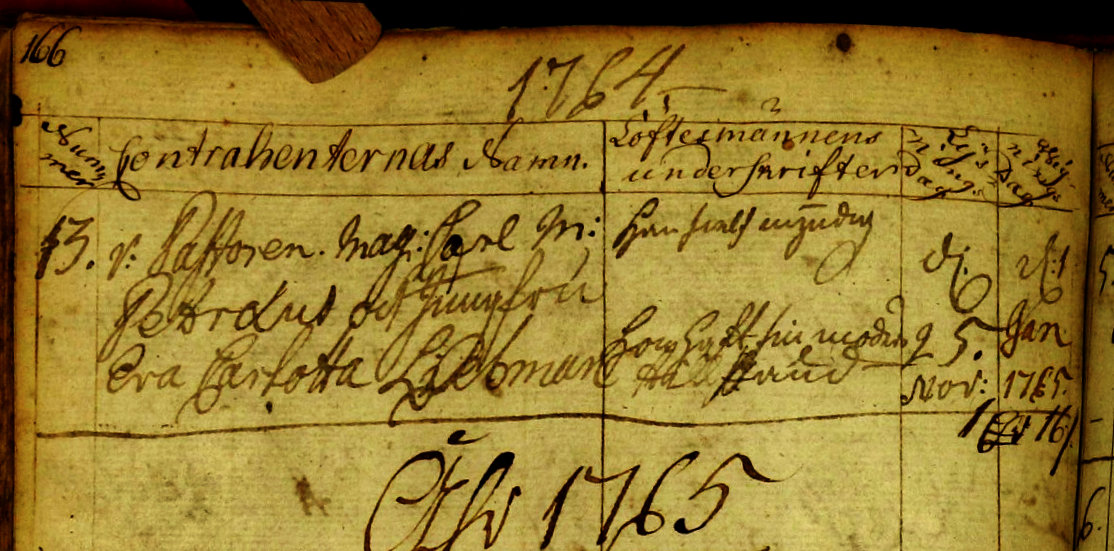 166
1764
Num̃
mer
Contrahenternas Namn.
Löftesmännens
underskrifter
Lysnings
Dag
Wigs
Dag
13. v: Pastoren. Mag: Carl M:
Petræus och Jungfru
Eva Carlotta
Han sielf myndig
Hon haft sin moder
d:
25.
Nov:
d: 1
Jan
1765.
Åhr 1765